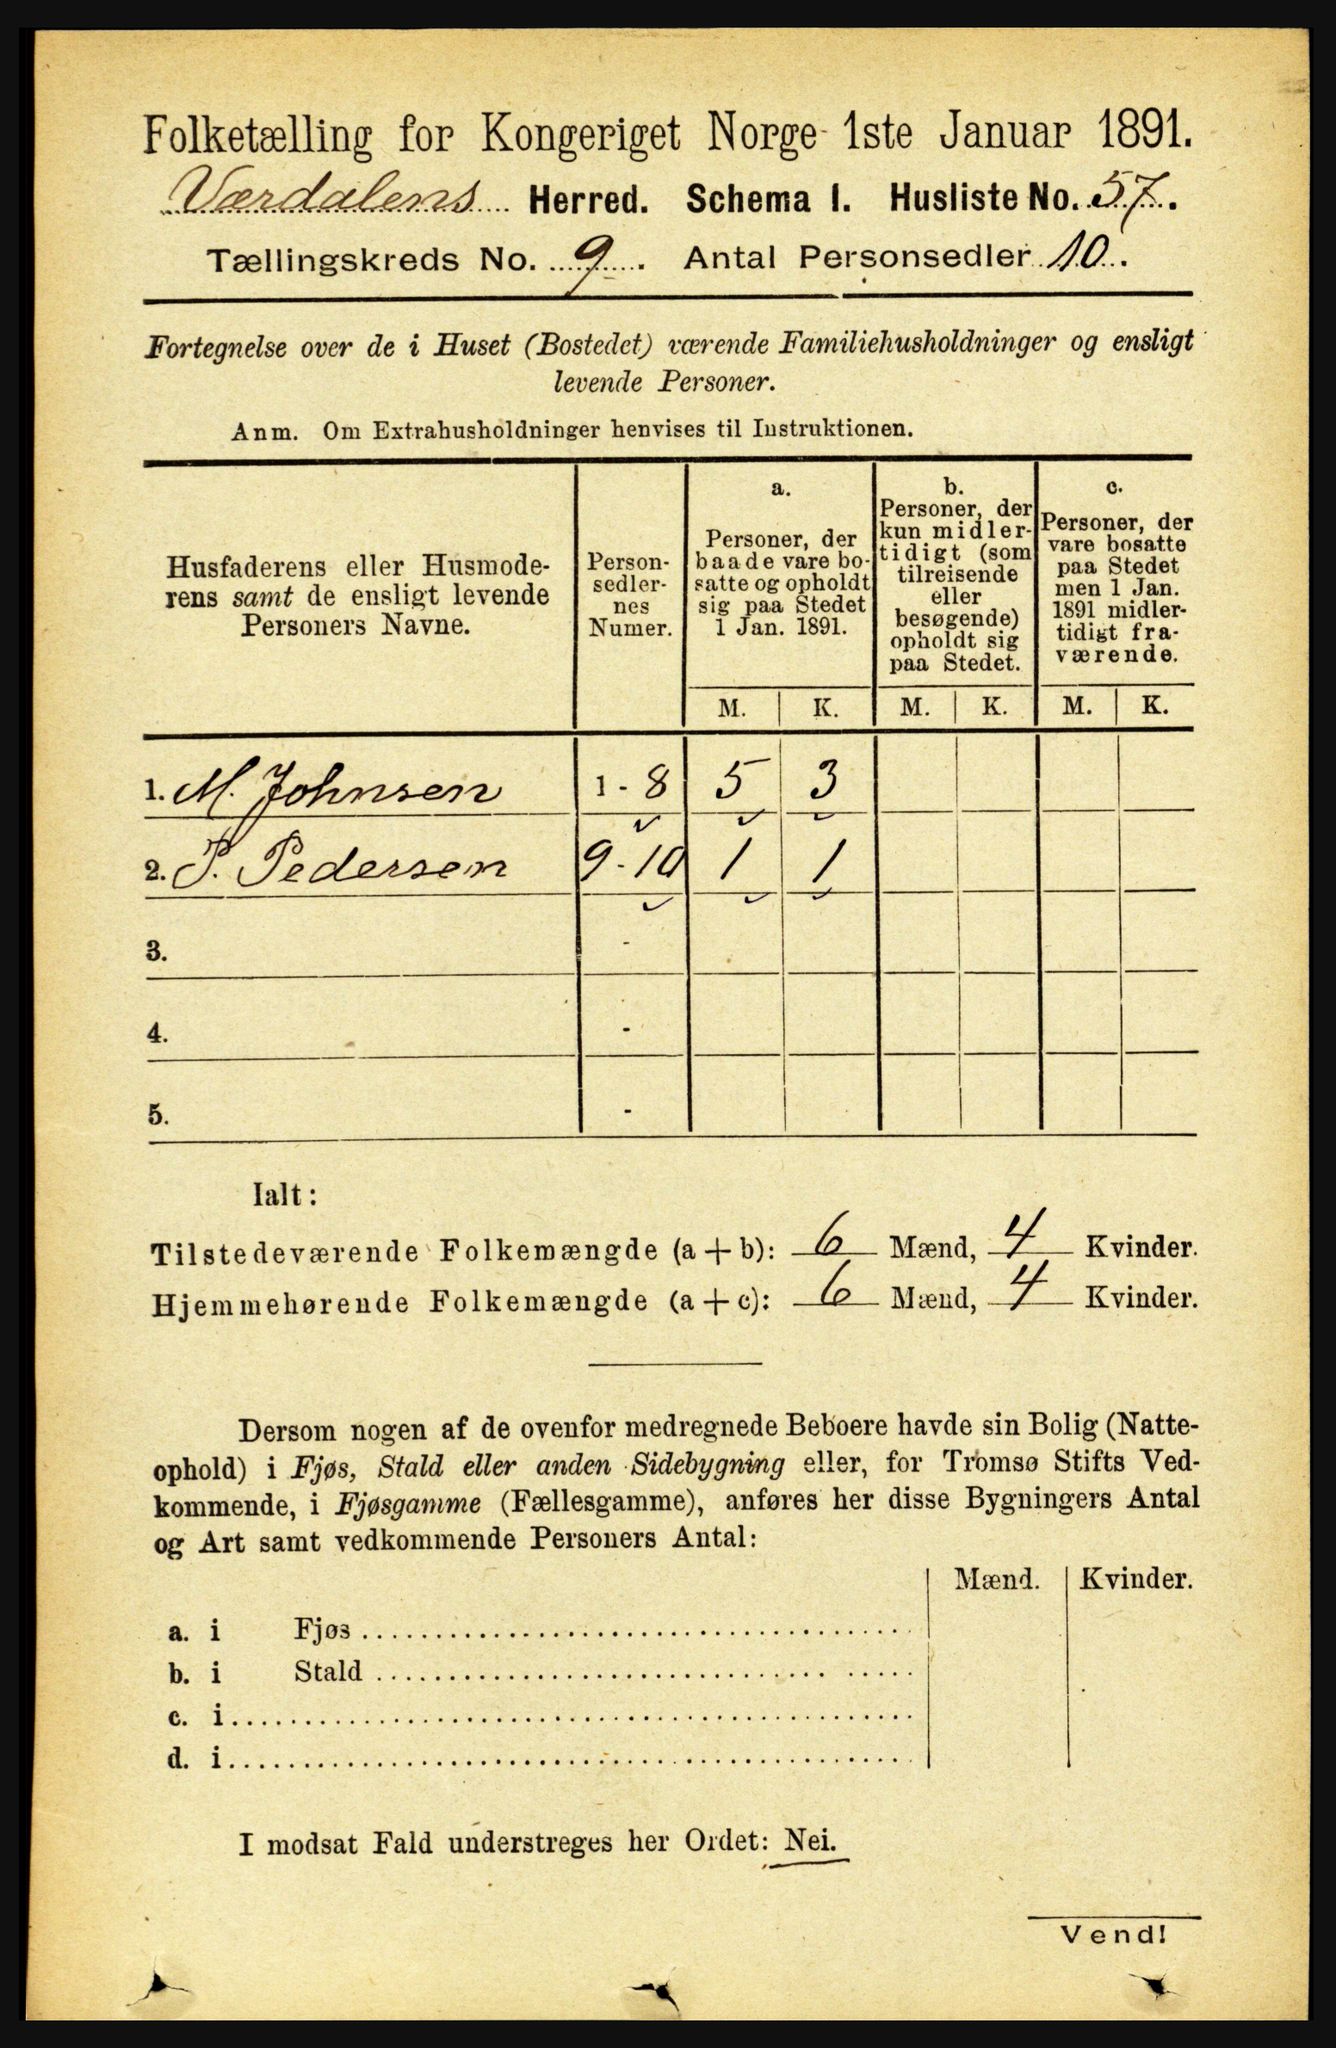 Folketælling for Kongeriget Norge 1ste Januar 1891.
Værdalens Herred. Schema I. Husliste No. 57.
Tællingskreds No. 9. Antal Personsedler 10.
Fortegnelse over de i Huset (Bostedet) værende Familiehusholdninger og ensligt
levende Personer.
Anm. Om Extrahusholdninger henvises til Instruktionen.
Husfaderens eller Husmode-
rens samt de ensligt levende
Personers Navne.
Person-
sedler-
nes
Numer.
a.
Personer, der
baade vare bo-
satte og opholdt
sig paa Stedet
1 Jan. 1891.
b.
Personer, der
kun midler-
tidigt (som
tilreisende
eller
besøgende)
opholdt sig
paa Stedet.
c.
Personer, der
vare bosatte
paa Stedet
men 1 Jan.
1891 midler-
tidigt fra-
værende.
M. K. M. K. M. K.
1. M. Johnsen 1 - 8 5 3
2. P. Pedersen 9 - 10 1 1
3. -
4. -
5. -
Ialt:
Tilstedeværende Folkemængde (a + b): 6 Mænd, 4 Kvinder.
Hjemmehørende Folkemængde (a + c): 6 Mænd, 4 Kvinder.
Dersom nogen af de ovenfor medregnede Beboere havde sin Bolig (Natte-
ophold) i Fjøs, Stald eller anden Sidebygning eller, for Tromsø Stifts Ved-
kommende, i Fjøsgamme (Fællesgamme), anføres her disse Bygningers Antal
og Art samt vedkommende Personers Antal:
Mænd. Kvinder.
a. i Fjøs
b. i Stald
c. i
d. i
I modsat Fald understreges her Ordet: Nei.
Vend!